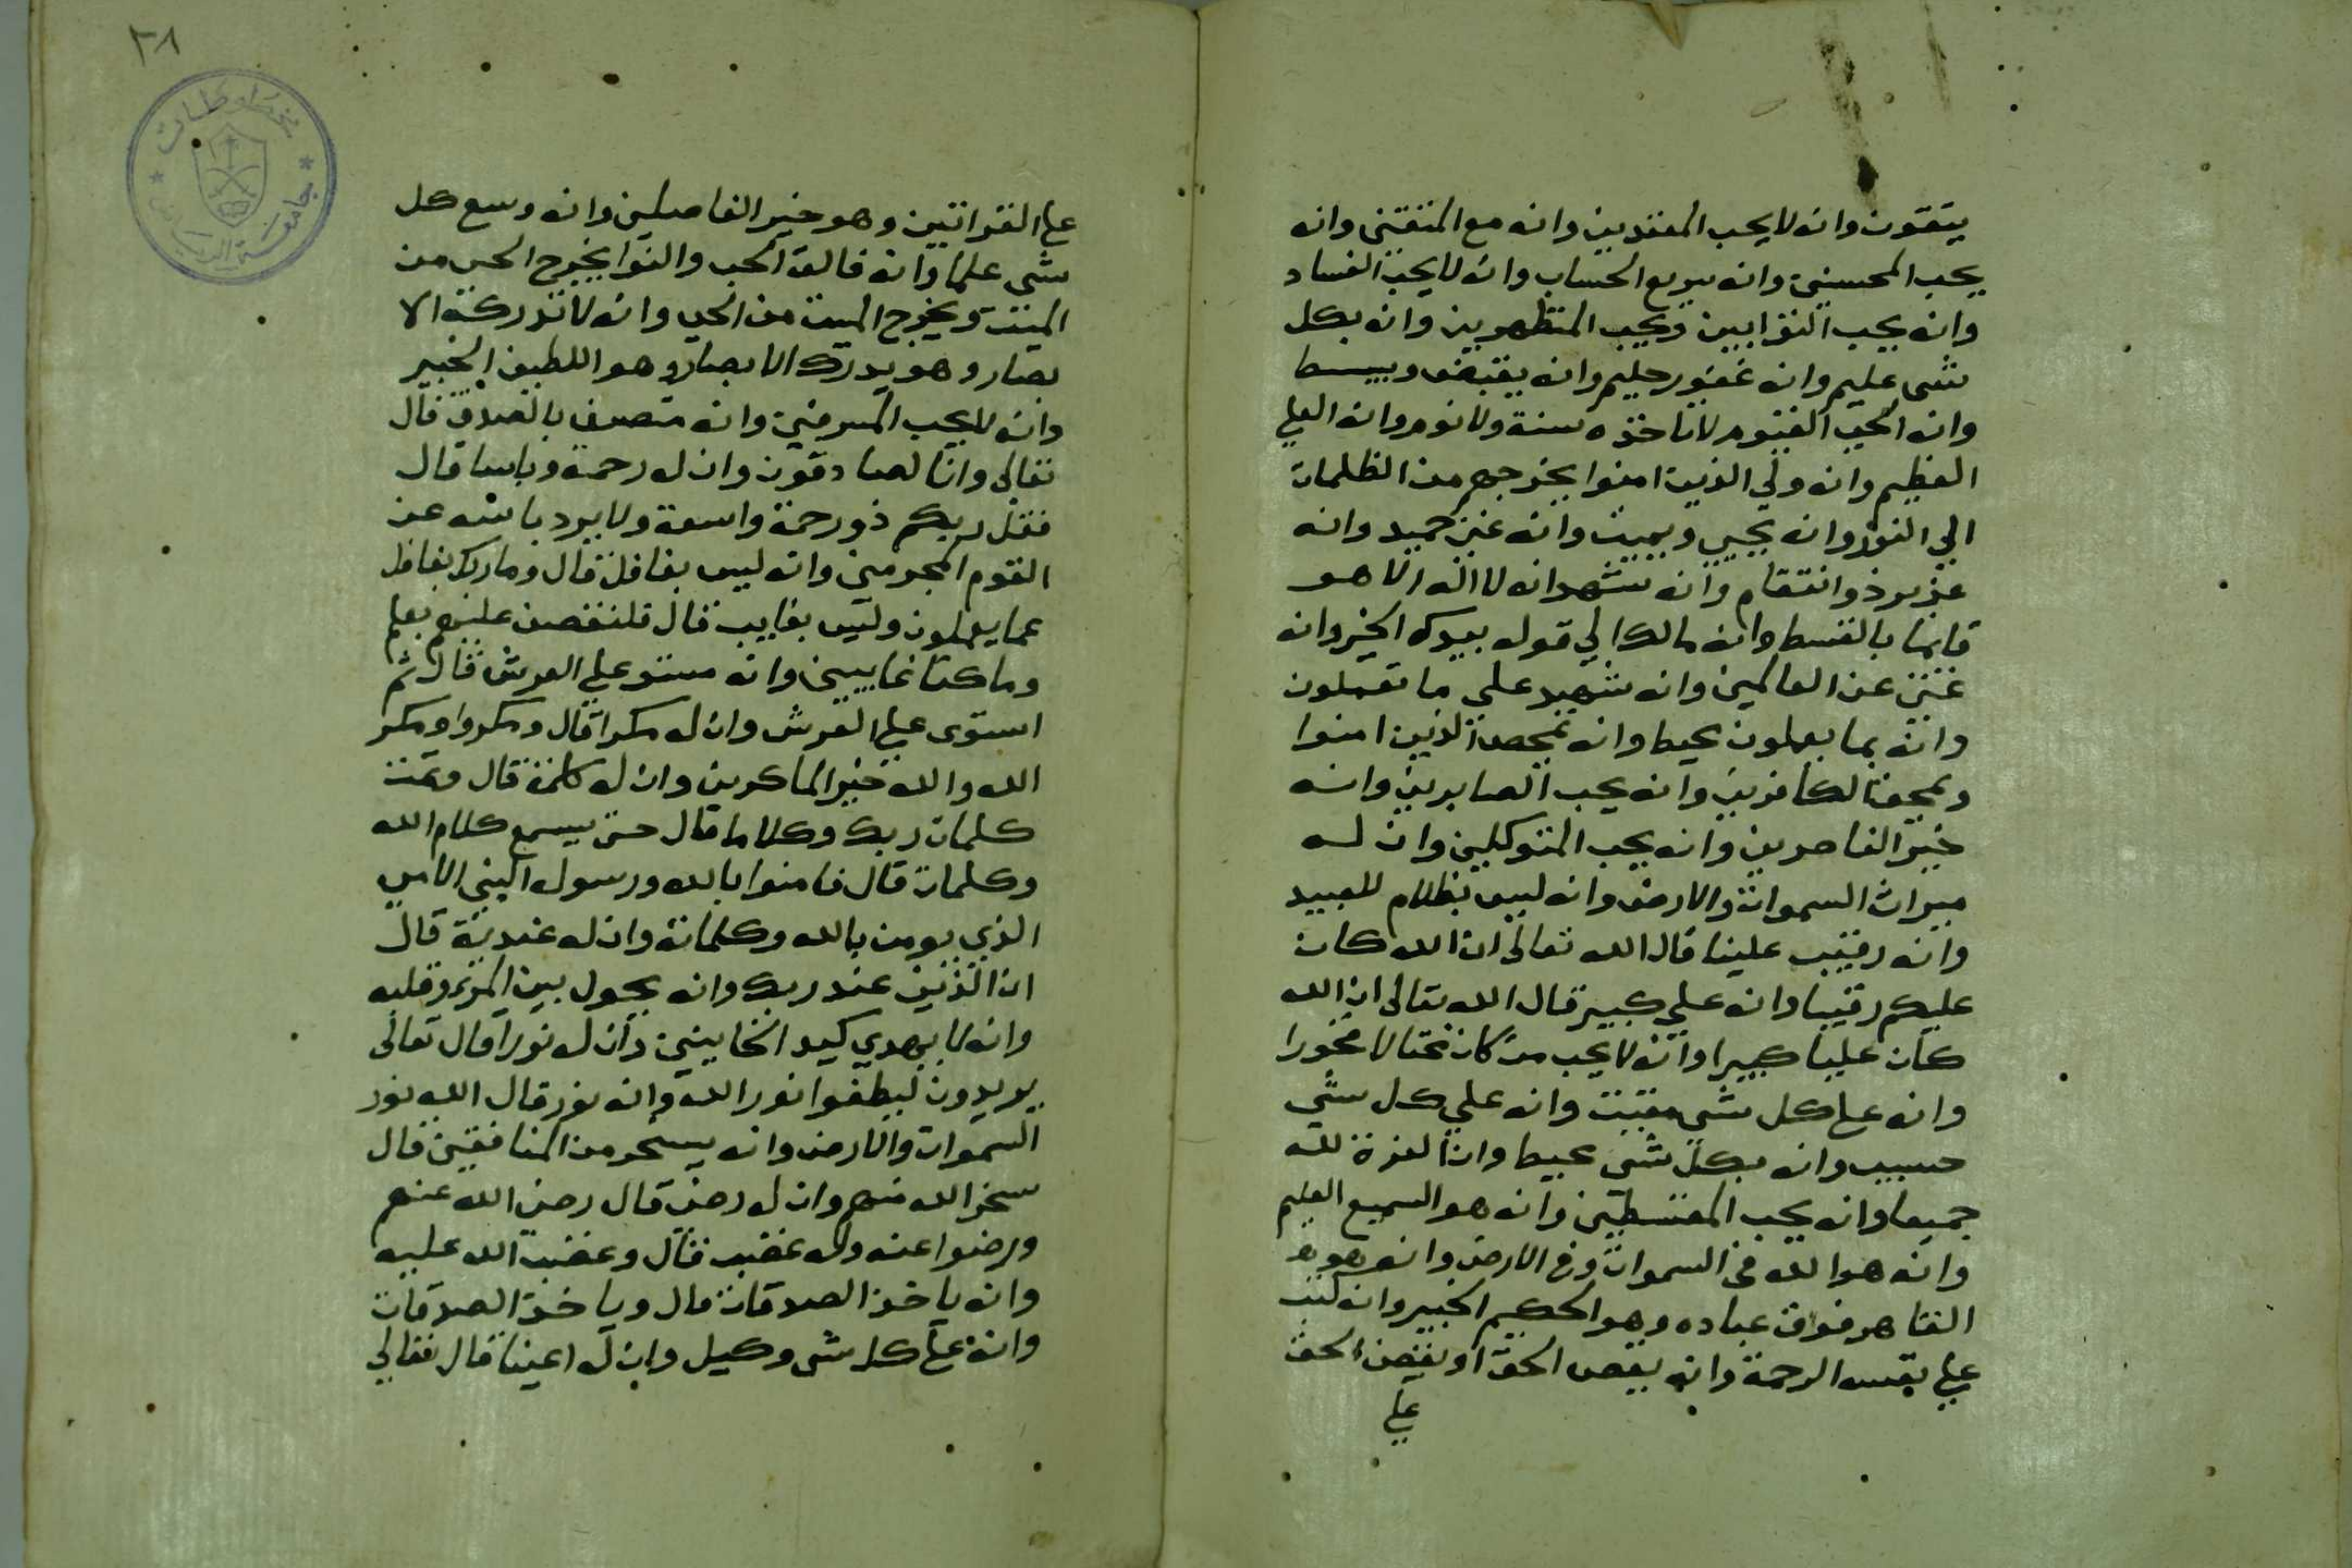 يتقون وانه لا يحب المعتدين وانه مع المتقين وانه
يحب المحسنين وانه سريع الحساب وانه لا يحب الفساد
وانه يحب التوابين ويحب المتطهرين وانه بكل
شى عليم وانه غفور حليم وانه يقبض ويبسط
وانه الحي القيوم لا تاخذه سنة ولا نوم وانه العلي
العظيم وانه ولي الذين امنوا يخرجهم من الظلمات
الي النور وانه يحيي ويميت وانه غني حميد وانه
عزيز ذو انتقام وانه شهد انه لا اله الا هو
قايما بالقسط وانه مالك الي قوله بيدك الخير وانه
غني عن العالمين وانه شهيد على ما تعملون
وانه بما يعملون محيط وانه يمحص الذين امنوا
ويمحق الكافرين وانه يحب الصابرين وانه
خير الناصرين وانه يحب المتوكلين وان له
ميراث السموات والارض وانه ليس بظلام للعبيد
وانه رقيب علينا قال الله تعالى ان الله كان
عليكم رقيبا وانه علي كبير قال الله تعالى ان الله
كان عليا كبيرا وانه لا يحب من كان مختالا فخورا
وانه على كل شى مقيت وانه علي كل شي
حسيب وانه بكل شى محيط وان العزة لله
جميعا وانه يحب المقسطين وانه هو السميع العليم
وانه هو الله في السموات وفى الارض وانه هو
القاهر فوق عباده وهو الحكيم الخبير وانه كتب
علي نفسه الرحمة وانه يقص الحق او يقض الحق
علي
٣٨
مخطوطات
جامعة الرياض
على القراتين وهو خير الفاصلين وانه وسع كل
شى علما وانه فالق الحب والنوا يخرج الحي من
الميت ويخرج الميت من الحي وانه لا تدركه الا
بصار وهو يدرك الابصار وهو اللطيف الخبير
وانه لا يحب المسرفين وانه متصف بالصدق قال
تعالى وانا لصادقون وان له رحمة وباسا قال
فقل ربكم ذو رحمة واسعة ولا يرد باسه عن
القوم المجرمين وانه ليس بغافل قال وما ربك بغافل
عما يعملون وليس بغايب قال فلنقصن عليهم بعلم
وما كنا غايبين وانه مستو علي العرش قال ثم
استوى علي العرش وان له مكرا قال ومكروا ومكر
الله والله خير الماكرين وان له كلمة قال وتمت
كلمات ربك وكلاما قال حتى يسمع كلام الله
وكلمات قال فامنوا بالله ورسوله النبي الامي
الذي يومن بالله وكلماته وان له عندية قال
ان الذين عند ربك وانه يحول بين المرء وقلبه
وانه لا يهدي كيد الخاينين وان له نورا قال تعالى
يريدون ليطفوا نور الله وانه نور قال الله نور
السموات والارض وانه يسخر من المنافقين قال
سخر الله منهم وان له رضى قال رضي الله عنهم
ورضوا عنه وله غضب قال وغضب الله عليه
وانه ياخذ الصدقات قال وياخذ الصدقات
وانه على كل شى وكيل وان له اعينا قال تعالي